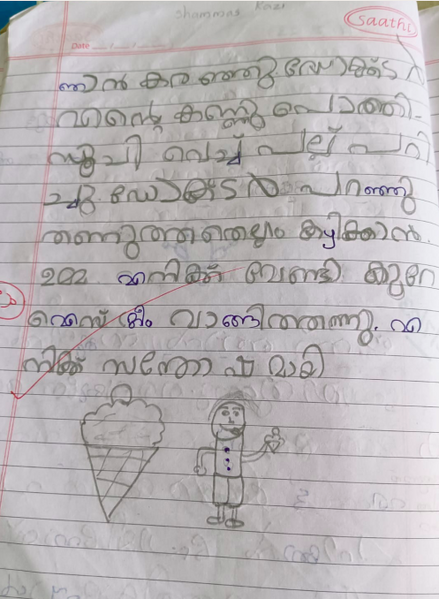 shammas Kazi
saathi
Date
ഞാൻ കരഞ്ഞു ഡോക്ടർ
എന്റെ കണ്ണു പൊത്തി
സൂചി വെച്ച് പല്ല് പറി
ച്ചു. ഡോക്ടർ പറഞ്ഞു
തണുത്തതെല്ലാം കഴിക്കാൻ.
എനിക്ക് വേണ്ടി കുറേ
ഐസ് ക്രീം വാങ്ങിത്തന്നു. എ
നിക്ക് സന്തോഷമായി